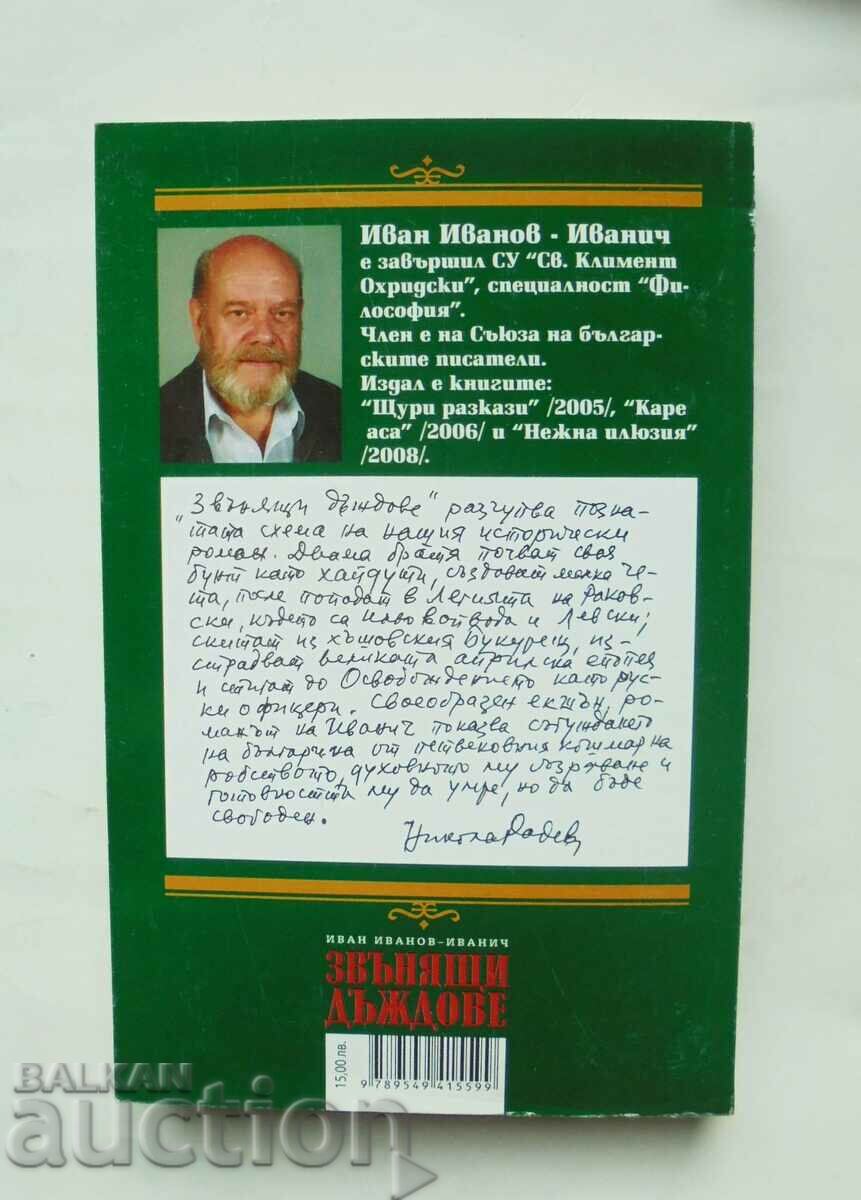 Иван Иванов - Иванич
е завършил СУ "Св. Климент
Охридски", специалност "Фи-
лософия".
Член е на Съюза на българ-
ските писатели.
Издал е книгите:
"Щури разкази" /2005/, "Каре
аса" /2006/ и "Нежна илюзия"
/2008/.
"Звънящи дъждове" разчупва позна-
тата схема на нашия исторически
роман. Двама братя почват своя
бунт като хайдути, създават малка че-
та, после попадат в Легията на Раков-
ски, където са Илю войвода и Левски;
скитат из хъшовския Букурещ, из-
страдват великата априлска епопея
и стигат до Освобождението като рус-
ки офицери. Своеобразен екшън, ро-
манът на Иванич показва събуждането
на българина от петвековния кошмар на
робството, духовното му възраждане и
готовността му да умре, но да бъде
свободен.
Никола Радев
ИВАН ИВАНОВ-ИВАНИЧ
ЗВЪНЯЩИ
ДЪЖДОВЕ
15,00 лв.
9 789549 415599
BALKAN
auction